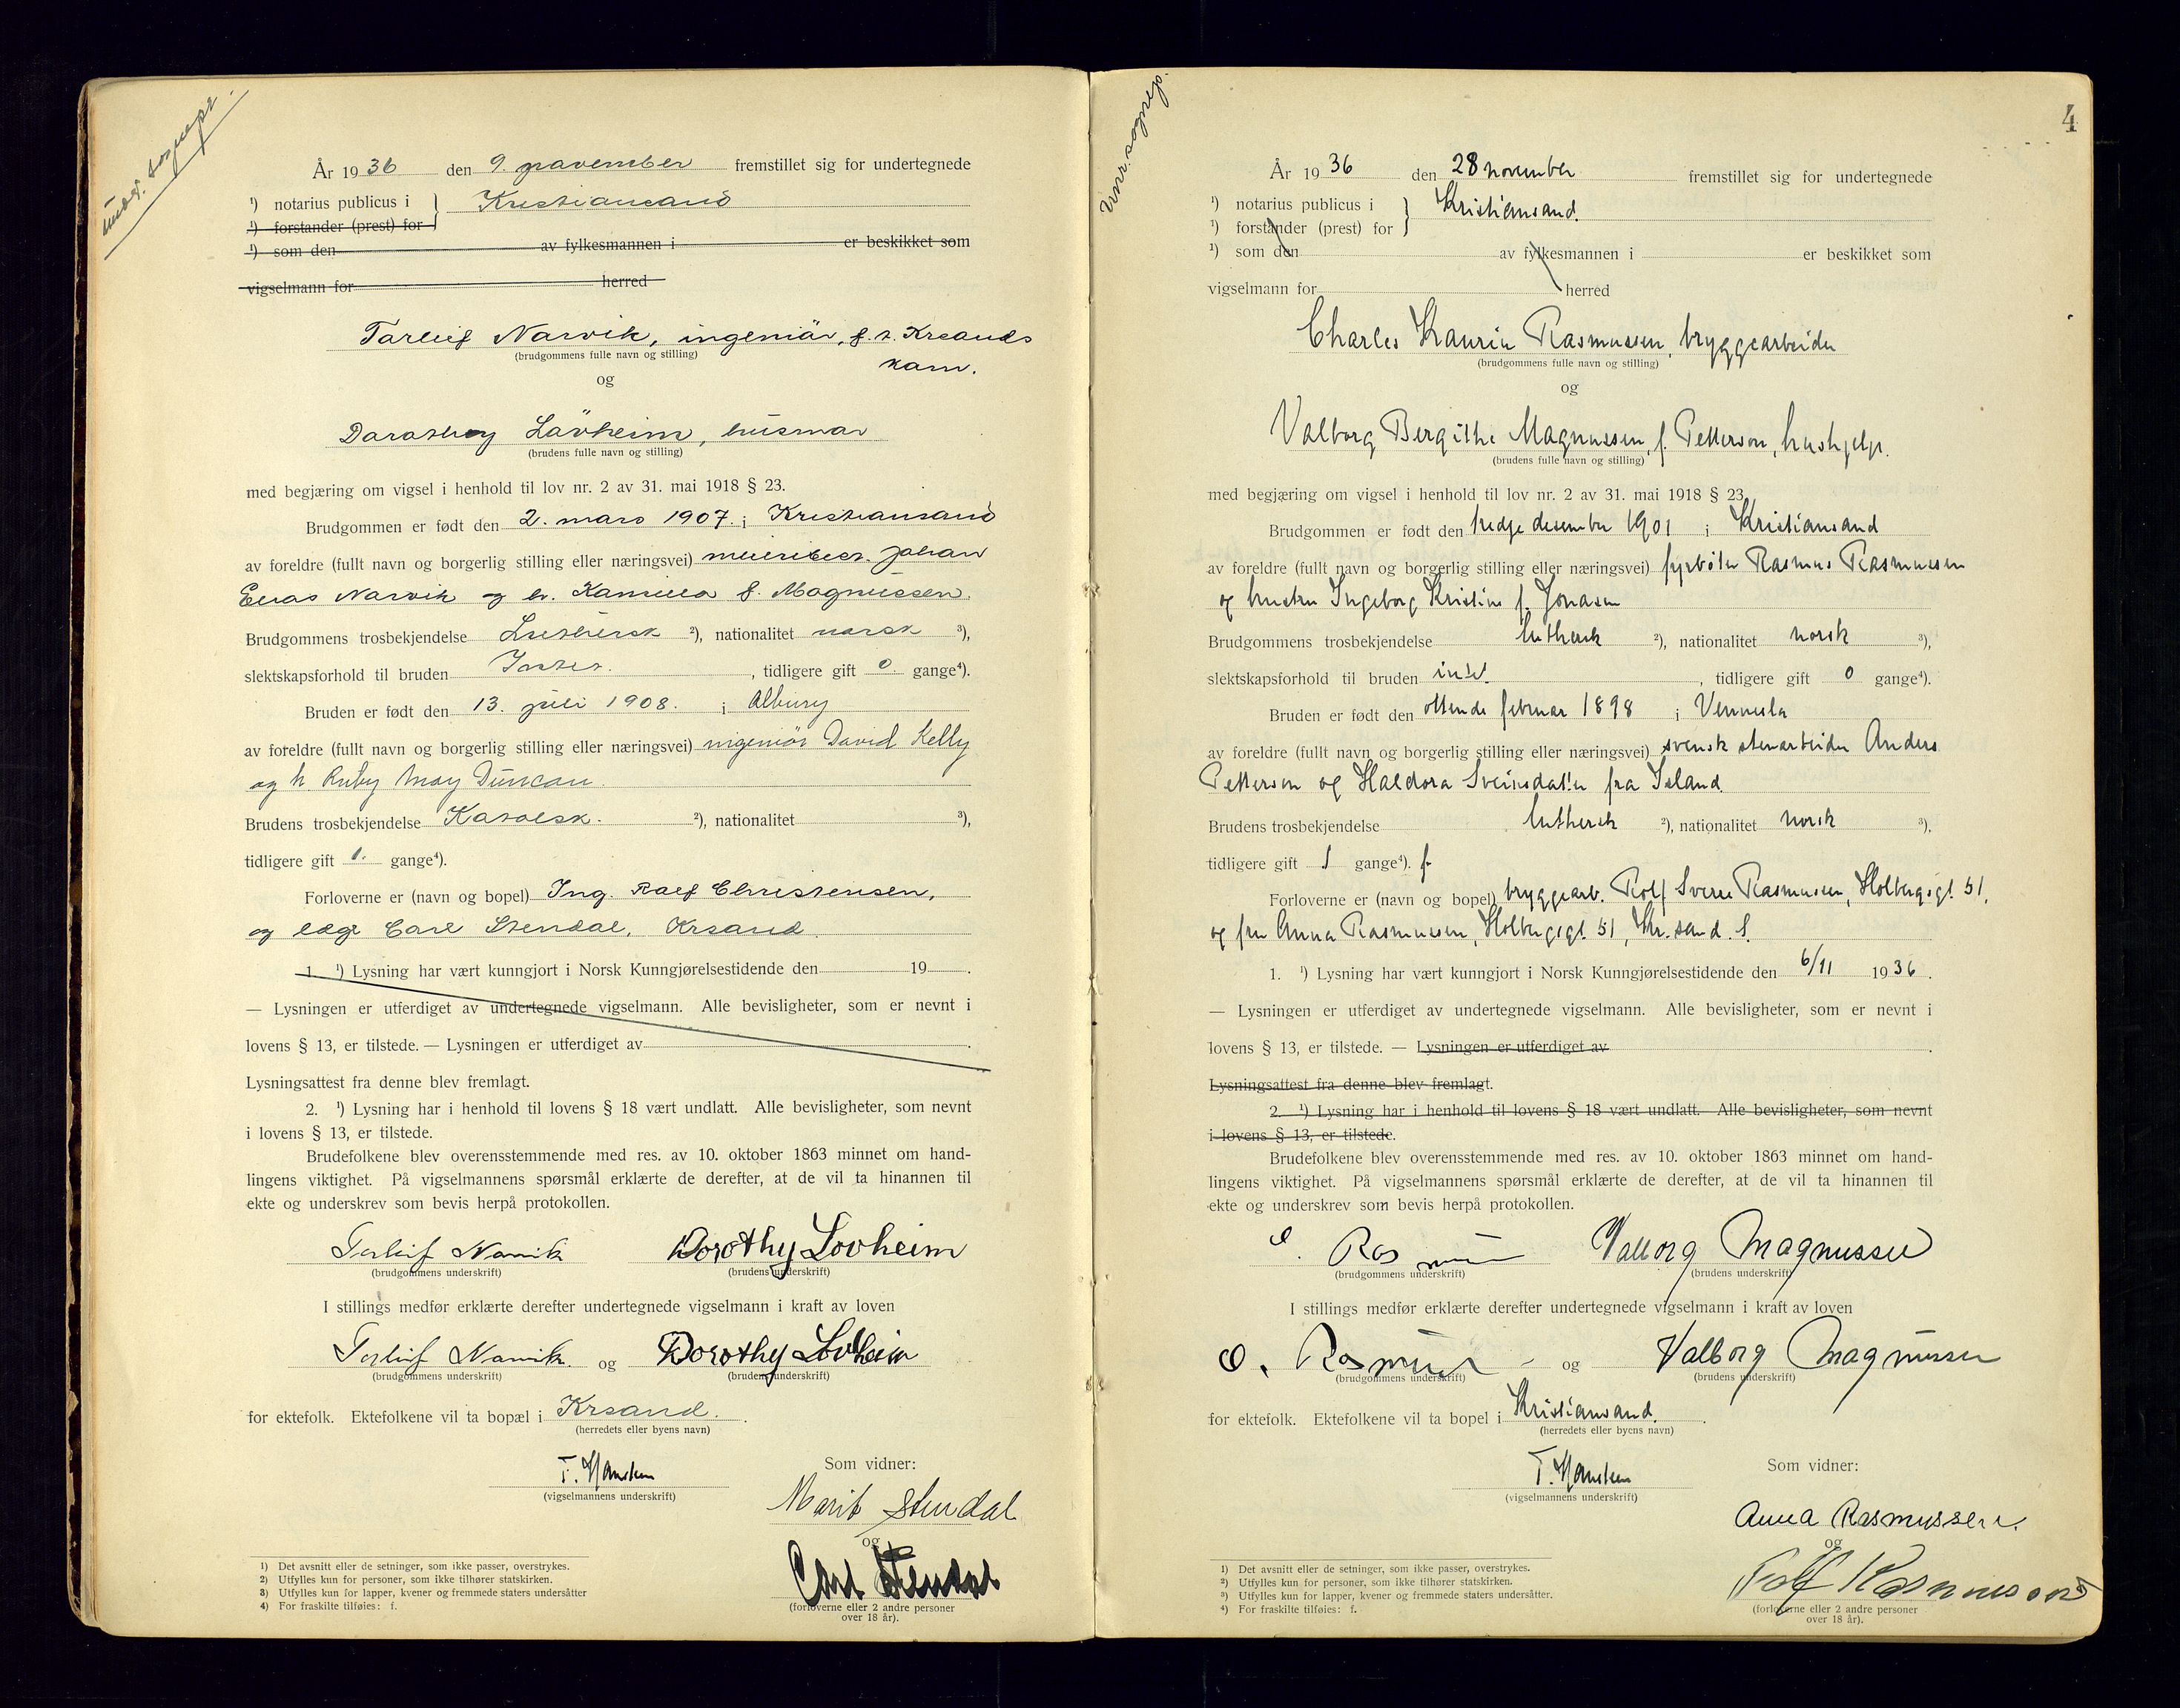 År 1936 den 9. november fremstillet sig for undertegnede
¹) notarius publicus i } Kristiansand
¹) forstander (prest) for
¹) som den av fylkesmannen i er beskikket som
vigselmann for herred
Torleif Narvik, ingeniör, f. t. Krsands
(brudgommens fulle navn og stilling)
kom.
og
Dorothey Lövheim, husmor
(brudens fulle navn og stilling)
med begjæring om vigsel i henhold til lov nr. 2 av 31. mai 1918 § 23.
Brudgommen er født den 2. mars 1907. i Kristiansand
av foreldre (fullt navn og borgerlig stilling eller næringsvei) meieribest. Johan
Elias Narvik og h. Kamilla f. Magnussen.
Brudgommens trosbekjendelse Luthersk ²), nationalitet norsk ³),
slektskapsforhold til bruden Intet. , tidligere gift 0 gange⁴).
Bruden er født den 13. juli 1908. i Albury
av foreldre (fullt navn og borgerlig stilling eller næringsvei) ingeniör David Kelly
og h. Ruby May Duncan.
Brudens trosbekjendelse Katolsk. ²), nationalitet ³),
tidligere gift 1. gange⁴).
Forloverne er (navn og bopel) Ing. Ralf Christensen,
og læge Carl Stendal, Krsand.
1. ¹) Lysning har vært kunngjort i Norsk Kunngjørelsestidende den 19 .
— Lysningen er utferdiget av undertegnede vigselmann. Alle bevisligheter, som er nevnt i
lovens § 13, er tilstede. — Lysningen er utferdiget av .
Lysningsattest fra denne blev fremlagt.
2. ¹) Lysning har i henhold til lovens § 18 vært undlatt. Alle bevisligheter, som nevnt
i lovens § 13, er tilstede.
Brudefolkene blev overensstemmende med res. av 10. oktober 1863 minnet om hand-
lingens viktighet. På vigselmannens spørsmål erklærte de derefter, at de vil ta hinannen til
ekte og underskrev som bevis herpå protokollen.
Torleif Narvik Dorothy Lovheim
(brudgommens underskrift) (brudens underskrift)
I stillings medfør erklærte derefter undertegnede vigselmann i kraft av loven
Torleif Narvik. og Dorothy Lovheim
(brudgommens underskrift) (brudens underskrift)
for ektefolk. Ektefolkene vil ta bopæl i Krsand. .
(herredets eller byens navn)
Som vidner:
T. Hansken
(vigselmannens underskrift)
Marit Stendal
og
Carl Stendal
(forloverne eller 2 andre personer
over 18 år).
1) Det avsnitt eller de setninger, som ikke passer, overstrykes.
2) Utfylles kun for personer, som ikke tilhører statskirken.
3) Utfylles kun for lapper, kvener og fremmede staters undersåtter
4) For fraskilte tilføies: f.
4
Unr. sognepr.
År 1936 den 28 november fremstillet sig for undertegnede
¹) notarius publicus i } Kristiansand.
¹) forstander (prest) for
¹) som den av fylkesmannen i er beskikket som
vigselmann for herred
Charles Laurin Rasmussen, bryggearbeider
(brudgommens fulle navn og stilling)
og
Valborg Bergithe Magnussen, f. Petterson, hushjelp.
(brudens fulle navn og stilling)
med begjæring om vigsel i henhold til lov nr. 2 av 31. mai 1918 § 23.
Brudgommen er født den tredje desember 1901 i Kristiansand
av foreldre (fullt navn og borgerlig stilling eller næringsvei) fyrböter Rasmus Rasmussen
og hustru Ingeborg Kristine f. Jonasen
Brudgommens trosbekjendelse luthersk ²), nationalitet norsk ³),
slektskapsforhold til bruden intet. , tidligere gift 0 gange⁴).
Bruden er født den ottende februar 1898 i Vennesla
av foreldre (fullt navn og borgerlig stilling eller næringsvei) svensk stenarbeider Anders
Petterson og Haldora Sveinsdatter fra Island.
Brudens trosbekjendelse luthersk ²), nationalitet norsk ³),
tidligere gift 1 gange⁴). f.
Forloverne er (navn og bopel) bryggearb. Rolf Sverre Rasmussen, Holbergsgt. 51,
og fru Anna Rasmussen, Holbergsgt. 51, Kr.sand. S.
1. ¹) Lysning har vært kunngjort i Norsk Kunngjørelsestidende den 6/11 1936.
— Lysningen er utferdiget av undertegnede vigselmann. Alle bevisligheter, som er nevnt i
lovens § 13, er tilstede. — Lysningen er utferdiget av .
Lysningsattest fra denne blev fremlagt.
2. ¹) Lysning har i henhold til lovens § 18 vært undlatt. Alle bevisligheter, som nevnt
i lovens § 13, er tilstede.
Brudefolkene blev overensstemmende med res. av 10. oktober 1863 minnet om hand-
lingens viktighet. På vigselmannens spørsmål erklærte de derefter, at de vil ta hinannen til
ekte og underskrev som bevis herpå protokollen.
Valborg Magnussen
(brudgommens underskrift) (brudens underskrift)
I stillings medfør erklærte derefter undertegnede vigselmann i kraft av loven
og Valborg Magnussen
(brudgommens underskrift) (brudens underskrift)
for ektefolk. Ektefolkene vil ta bopel i Kristiansand. .
(herredets eller byens navn)
Som vidner:
T. Hansken
(vigselmannens underskrift)
Anna Rasmussen.
og
Rolf Rasmussen
(forloverne eller 2 andre personer
over 18 år).
1) Det avsnitt eller de setninger, som ikke passer, overstrykes.
2) Utfylles kun for personer, som ikke tilhører statskirken.
3) Utfylles kun for lapper, kvener og fremmede staters undersåtter.
4) For fraskilte tilføies: f.